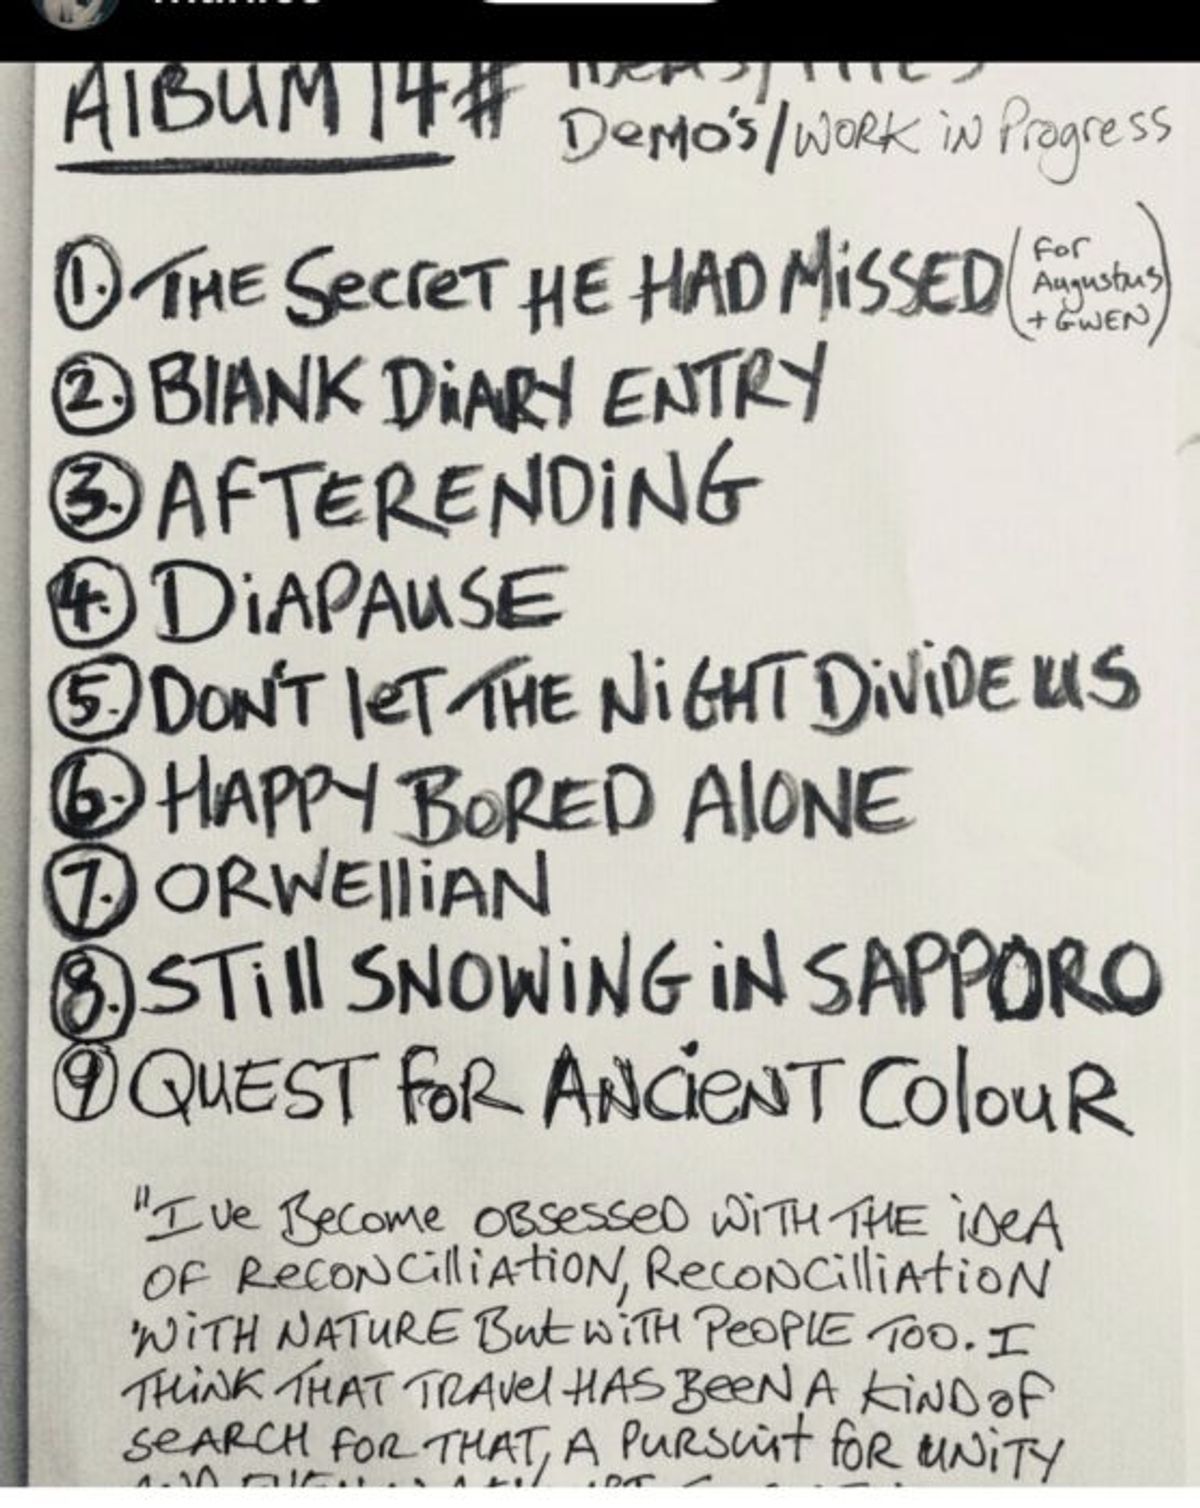 ALBUM 14# IDEAS/TITLES
DEMO'S/WORK IN PROGRESS
1. THE SECRET HE HAD MISSED (FOR
AUGUSTUS
+ GWEN)
2. BLANK DIARY ENTRY
3. AFTERENDING
4. DIAPAUSE
5. DON'T LET THE NIGHT DIVIDE US
6. HAPPY BORED ALONE
7. ORWELLIAN
8. STILL SNOWING IN SAPPORO
9 QUEST FOR ANCIENT COLOUR
"I'VE BECOME OBSESSED WITH THE IDEA
OF RECONCILLIATION, RECONCILLIATION
WITH NATURE BUT WITH PEOPLE TOO. I
THINK THAT TRAVEL HAS BEEN A KIND OF
SEARCH FOR THAT, A PURSUIT FOR UNITY